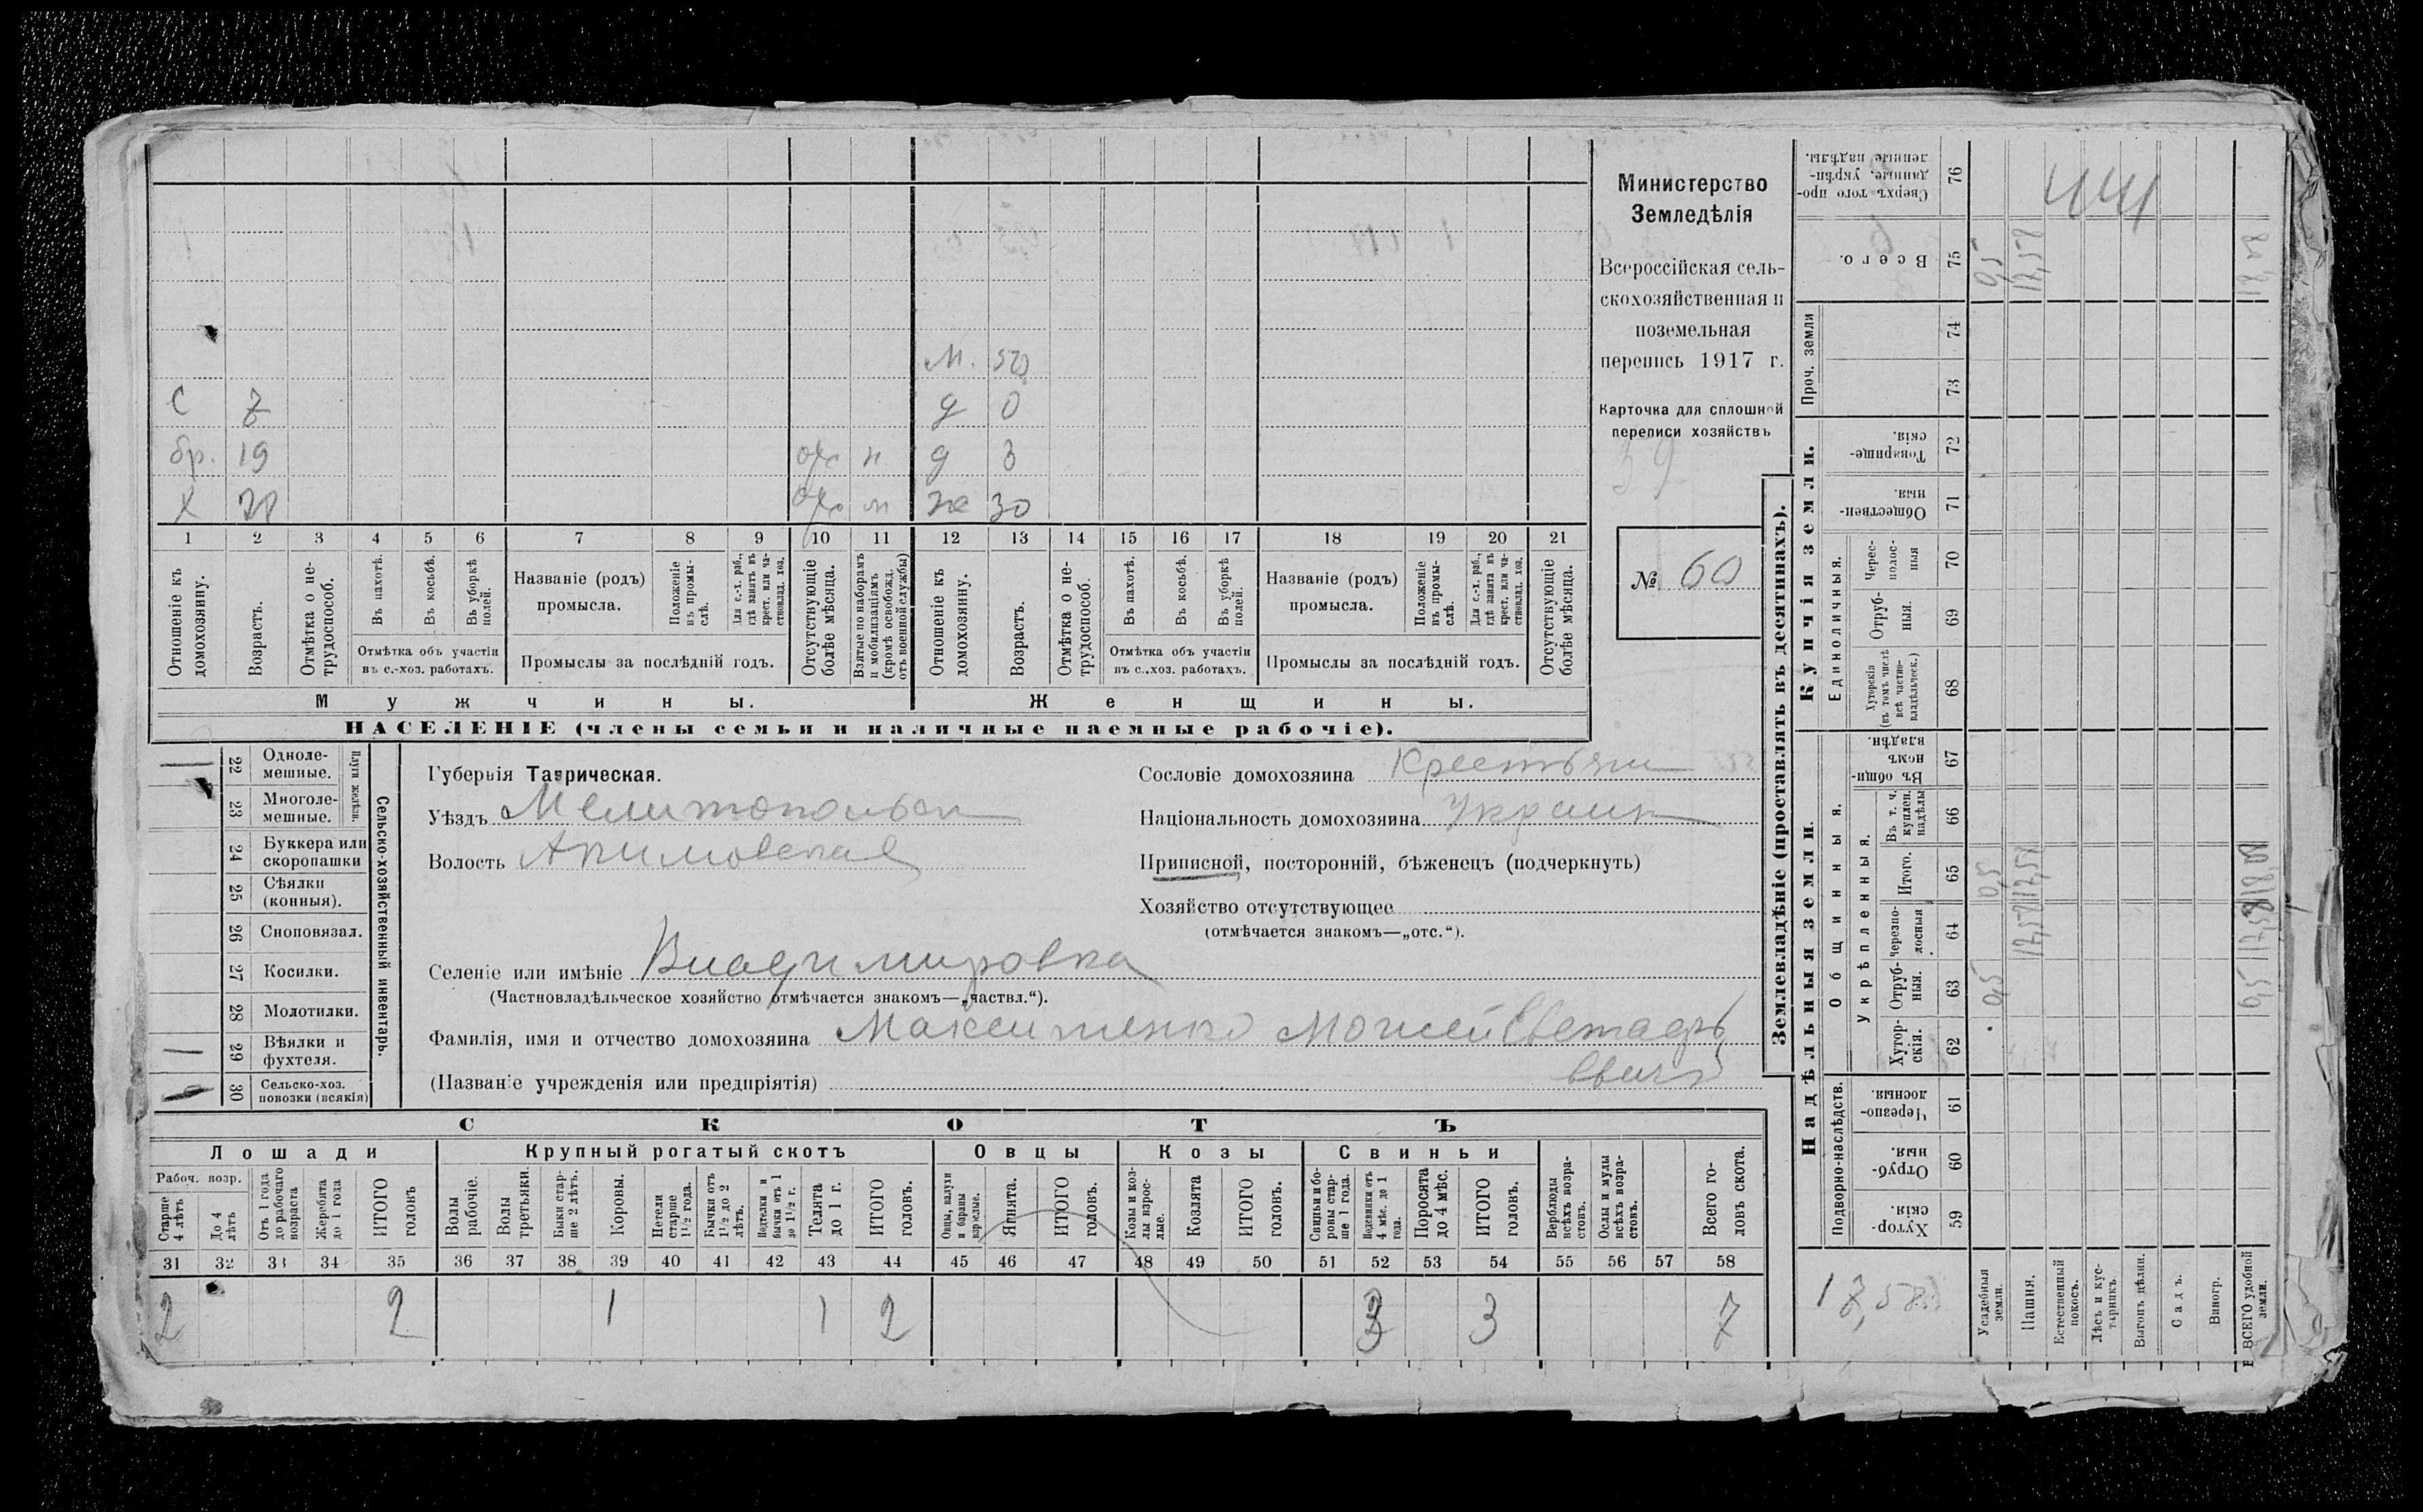 Министерство
Земледѣлія
Всероссійская сель-
скохозяйственная и
поземельная
перепись 1917 г.
Карточка для сплошной
переписи хозяйствъ
39
№ 60
м. 50
С 7 д 0
бр. 19 отс н д 3
х отс н ж 30
1 2 3 4 5 6 7 8 9 10 11 12 13 14 15 16 17 18 19 20 21
Отношеніе къ домохозяину.
Возрастъ.
Отмѣтка о не-трудоспособ.
Въ пахотѣ.
Въ косьбѣ.
Въ уборкѣ полей.
Отмѣтка объ участіи
въ с.-хоз. работахъ.
Названіе (родъ)
промысла.
Положеніе въ промы-слѣ.
Для с.-х. раб., гдѣ занятъ въ крест. или ча-стновлад. хоз.
Промыслы за послѣдній годъ.
Отсутствующіе болѣе мѣсяца.
Взятые по наборамъ и мобилизаціямъ (кромѣ освобожд. отъ военной службы)
Отношеніе къ домохозяину.
Возрастъ.
Отмѣтка о не-трудоспособ.
Въ пахотѣ.
Въ косьбѣ.
Въ уборкѣ полей.
Отмѣтка объ участіи
въ с..хоз. работахъ.
Названіе (родъ)
промысла.
Положеніе въ промы-слѣ.
Для с.-х. раб., гдѣ занята въ крест. или ча-стновлад. хоз.
Промыслы за послѣдній годъ.
Отсутствующіе болѣе мѣсяца.
Мужчины.
Женщины.
НАСЕЛЕНІЕ (члены семьи и наличные наемные рабочіе).
22 Одноле-мешные.
23 Многоле-мешные.
Плуги желѣзн.
24 Буккера или скоропашки
25 Сѣялки (конныя).
26 Сноповязал.
27 Косилки.
28 Молотилки.
29 Вѣялки и фухтеля.
30 Сельско-хоз. повозки (всякія)
Сельско-хозяйственный инвентарь.
Губернія Таврическая.
Уѣздъ Мелитопольск
Волость Акимовская
Сословіе домохозяина Крестьян
Національность домохозяина Украин
Приписной, посторонній, бѣженецъ (подчеркнуть)
Хозяйство отсутствующее
(отмѣчается знакомъ—„отс.“).
Селеніе или имѣніе Владимировка
(Частновладѣльческое хозяйство отмѣчается знакомъ—„частвл.“).
Фамилія, имя и отчество домохозяина Максименко Моисей
(Названіе учрежденія или предпріятія)
СКОТЪ
Лошади
Крупный рогатый скотъ
Овцы
Козы
Свиньи
Рабоч. возр.
Старше 4 лѣтъ
До 4 лѣтъ
Отъ 1 года до рабочаго возраста
Жеребята до 1 года
ИТОГО головъ
Волы рабочіе.
Волы третьяки.
Быки стар-ше 2 лѣтъ.
Коровы.
Нетели старше 1½ года.
Бычки отъ 1½ до 2 лѣтъ.
Подтелки и бычки отъ 1 до 1½ г.
Телята до 1 г.
ИТОГО головъ.
Овцы, валухи и бараны взрослые.
Ягнята.
ИТОГО головъ.
Козы и коз-лы взрос-лые.
Козлята
ИТОГО головъ.
Свиньи и бо-ровы стар-ше 1 года.
Подсвинки отъ 4 мѣс. до 1 года.
Поросята до 4 мѣс.
ИТОГО головъ.
Верблюды всѣхъ возра-стовъ.
Ослы и мулы всѣхъ возра-стовъ.
Всего го-ловъ скота.
31 32 33 34 35 36 37 38 39 40 41 42 43 44 45 46 47 48 49 50 51 52 53 54 55 56 57 58
2 2 1 1 2 3 3 7
Землевладѣніе (проставлять въ десятинахъ).
Надѣльныя земли.
Купчія земли.
Проч. земли
Подворно-наслѣдств.
Общинныя.
Укрѣпленныя.
Единоличныя.
Хутор-скія. 59
Отруб-ныя. 60
Черезпо-лосныя. 61
Хутор-скія. 62
Отруб-ныя. 63
Черезпо-лосныя 64
Итого. 65
Въ т. ч. куплен. надѣлы 66
Въ общин-номъ владѣн. 67
Хуторскія (въ томъ числѣ всѣ частно-владѣльческ.) 68
Отруб-ныя. 69
Черес-полос-ныя 70
Обществен-ныя. 71
Товарище-скія. 72
73
74
Всего. 75
Сверхъ того про-данные, укрѣп-ленные надѣлы. 76
Усадебныя земли. 0,5 0,5 0,5
Пашня. 17,58 17,58 17,58
Естественный покосъ.
Лѣсъ и кус-тарникъ.
Выгонъ цѣлин.
Садъ.
Виногр.
ВСЕГО удобной земли.